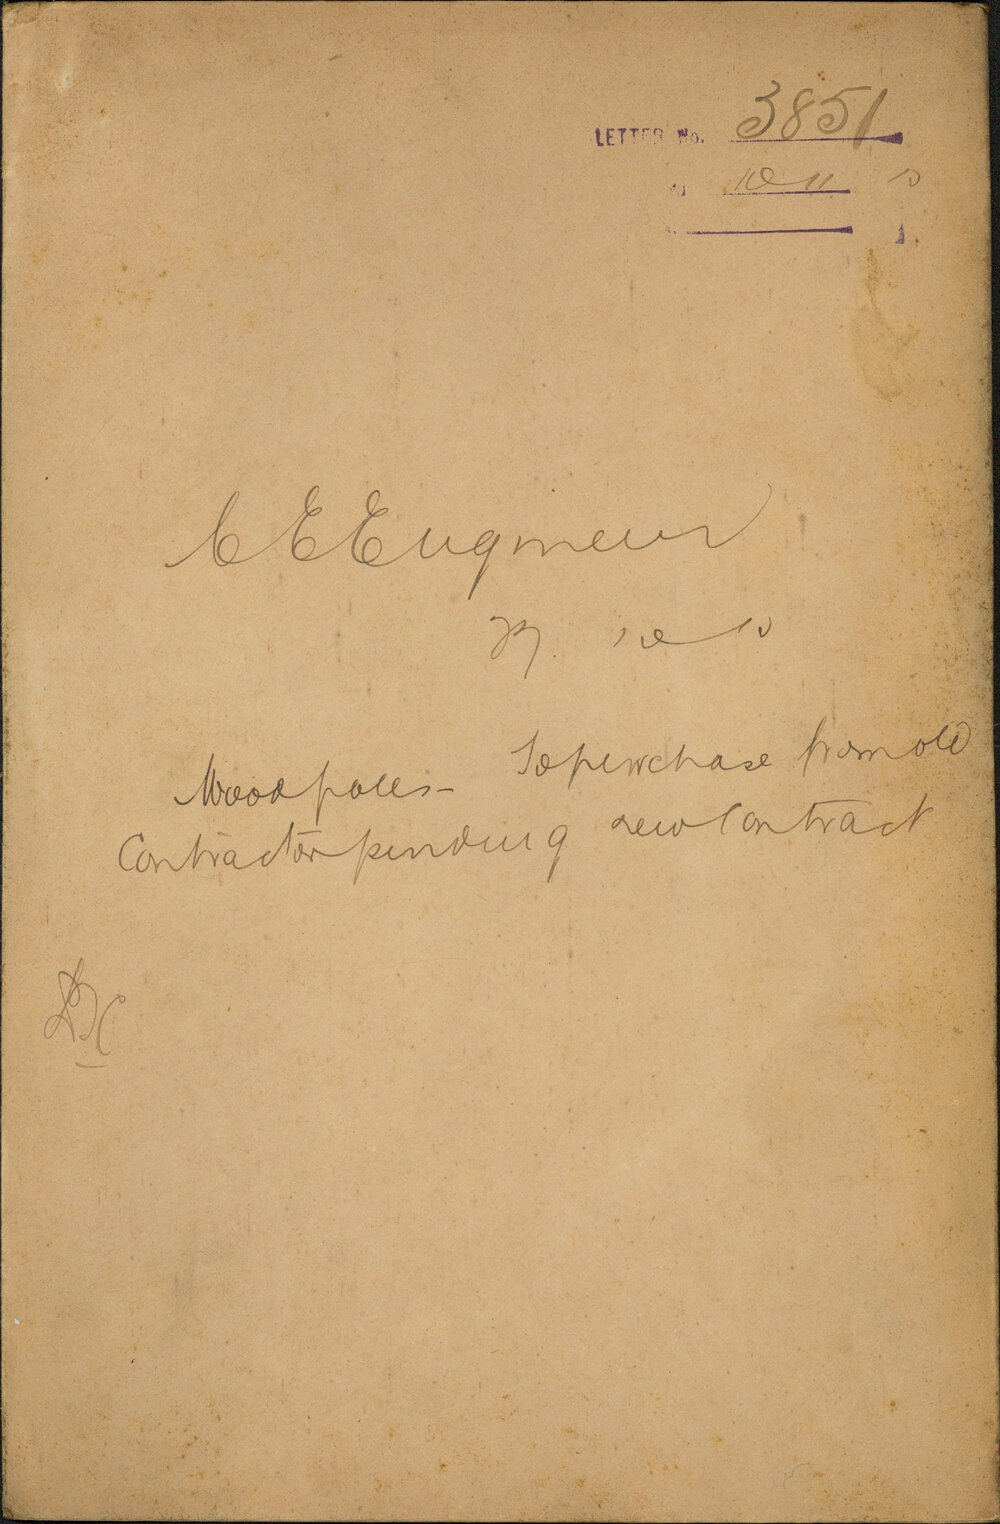 LETTER No. 3851
10 11 10
C E Engineer
10 10
Wood poles - To purchase from old
Contractor pending new Contract